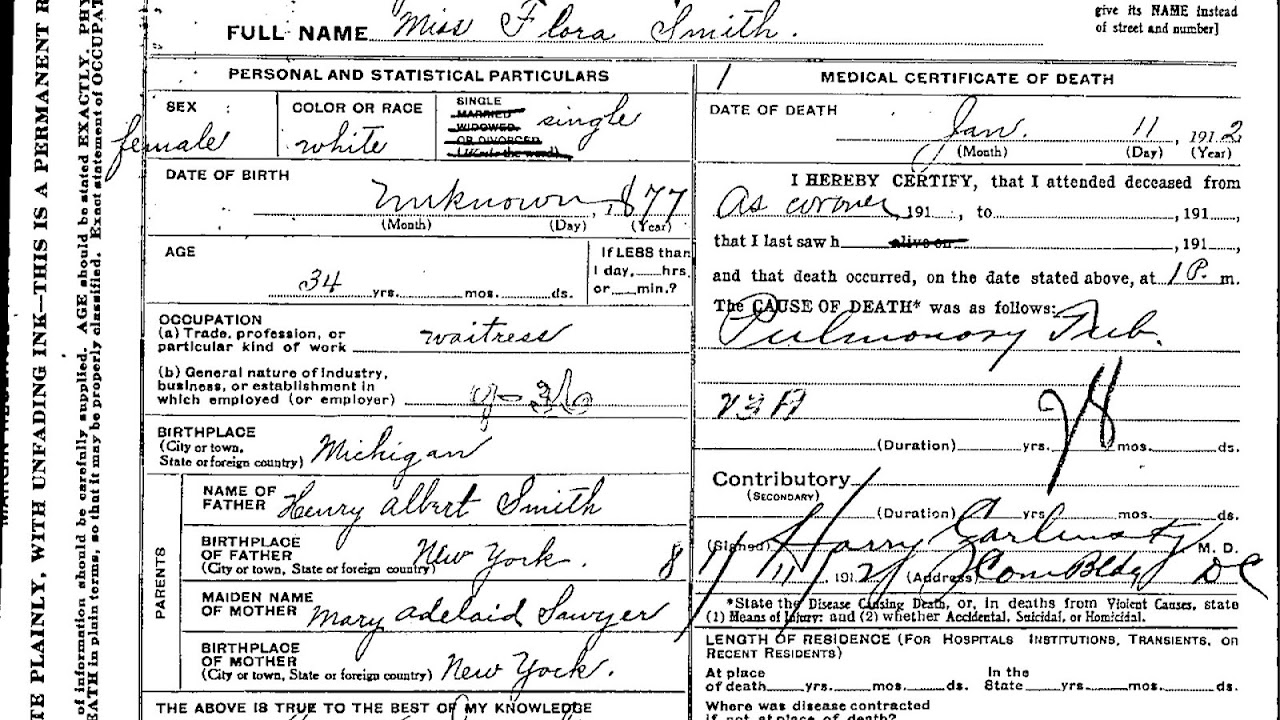 give its NAME instead
of street and number]
FULL NAME Miss Flora Smith.
PERSONAL AND STATISTICAL PARTICULARS
SEX
female
COLOR OR RACE
white
SINGLE
MARRIED
WIDOWED
OR DIVORCED
(Write the word)
single
DATE OF BIRTH
Unknown, 1877
(Month) (Day) (Year)
AGE
34 yrs. mos. ds.
If LESS than
1 day, hrs.
or min.?
OCCUPATION
(a) Trade, profession, or
particular kind of work waitress
(b) General nature of Industry,
business, or establishment in
which employed (or employer)
BIRTHPLACE
(City or town,
State or foreign country) Michigan
PARENTS
NAME OF
FATHER Henry Albert Smith
BIRTHPLACE
OF FATHER
(City or town, State or foreign country) New York. 8
MAIDEN NAME
OF MOTHER Mary Adelaid Sawyer
BIRTHPLACE
OF MOTHER
(City or town, State or foreign country) New York.
THE ABOVE IS TRUE TO THE BEST OF MY KNOWLEDGE
1 MEDICAL CERTIFICATE OF DEATH
DATE OF DEATH
Jan. 11, 1912
(Month) (Day) (Year)
I HEREBY CERTIFY, that I attended deceased from
As coroner, 191, to , 191,
that I last saw h alive on , 191,
and that death occurred, on the date stated above, at 1 P. m.
The CAUSE OF DEATH* was as follows:
Pulmonary Tub.
(Duration) yrs. mos. ds.
Contributory
(SECONDARY)
(Duration) yrs. mos. ds.
(Signed) Harry M. D.
1/11, 1912 (Address) Com Bldg
*State the Disease Causing Death, or, in deaths from Violent Causes, state
(1) Means of Injury; and (2) whether Accidental, Suicidal, or Homicidal.
LENGTH OF RESIDENCE (FOR HOSPITALS INSTITUTIONS, TRANSIENTS, OR
RECENT RESIDENTS)
At place
of death yrs. mos. ds.
In the
State yrs. mos. ds.
Where was disease contracted
if not at place of death?
TE PLAINLY, WITH UNFADING INK—THIS IS A PERMANENT R
of information should be carefully supplied. AGE should be stated EXACTLY. PHY
EATH in plain terms, so that it may be properly classified. Exact statement of OCCUPAT